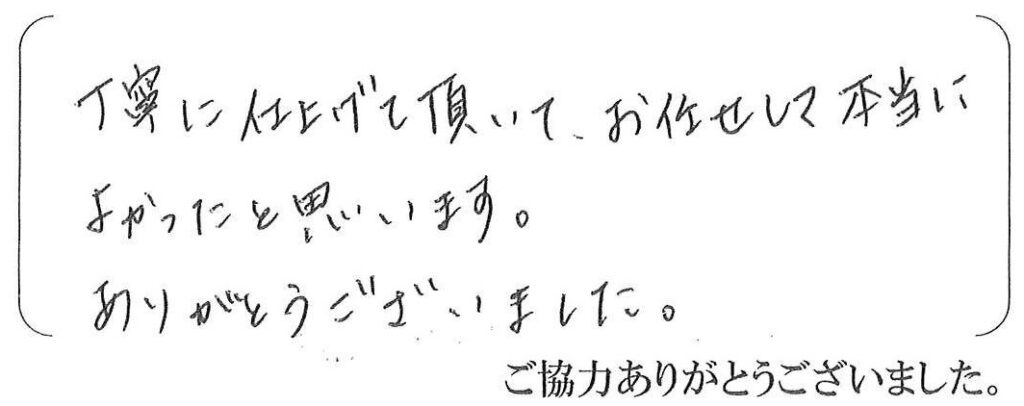 丁寧に仕上げて頂いて、お任せして本当に
よかったと思います。
ありがとうございました。
ご協力ありがとうございました。